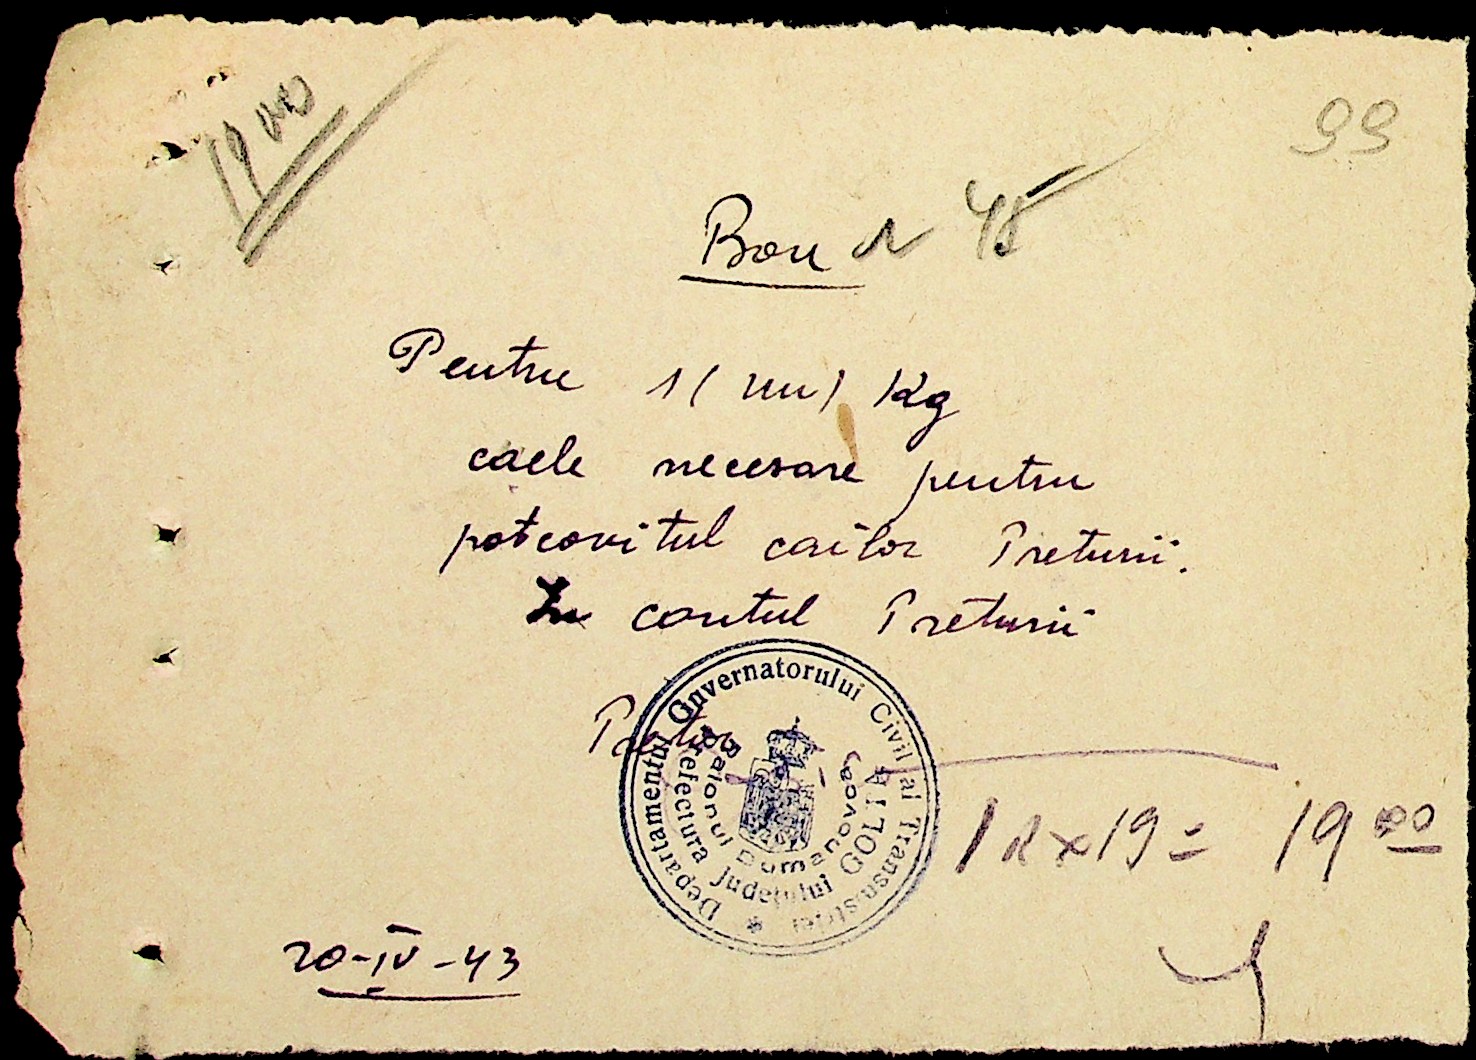 19 00
99
Bon N 45
Pentru 1 (un) Kg
caele necesare pentru
potcovitul cailor Preturii.
In contul Preturii
Pretor
Departamentul Guvernatorului Civil al Transnistriei
Prefectura Județului GOLTA
Raionul Dumanovca
1 K x 19 = 19 00
20-IV-43